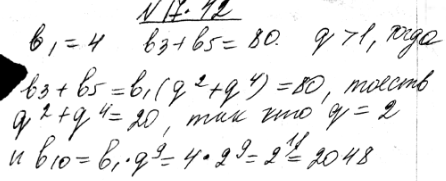 N 17.42
b₁ = 4 b₃ + b₅ = 80. q > 1, тогда
b₃ + b₅ = b₁(q² + q⁴) = 80, то есть
q² + q⁴ = 20, так что q = 2
и b₁₀ = b₁ · q⁹ = 4 · 2⁹ = 2¹¹ = 2048